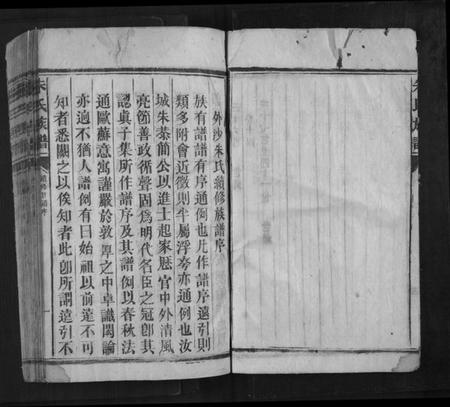 外沙朱氏續修族譜序
族有譜譜有序通例也凡作譜序遠引則
類多附會近徵則半屬浮夸亦通例也汝
城朱恭簡公以進士起家歷官中外清風
亮節善政循聲固為明代名臣之冠卽其
認眞子集所作譜序及其譜例以春秋法
通歐蘇意寓謹嚴於敦厚之中卓識閎論
亦逈不猶人譜例有曰始祖以前遠不可
知者悉闕之以俟知者此卽所謂遠引不
朱氏族譜